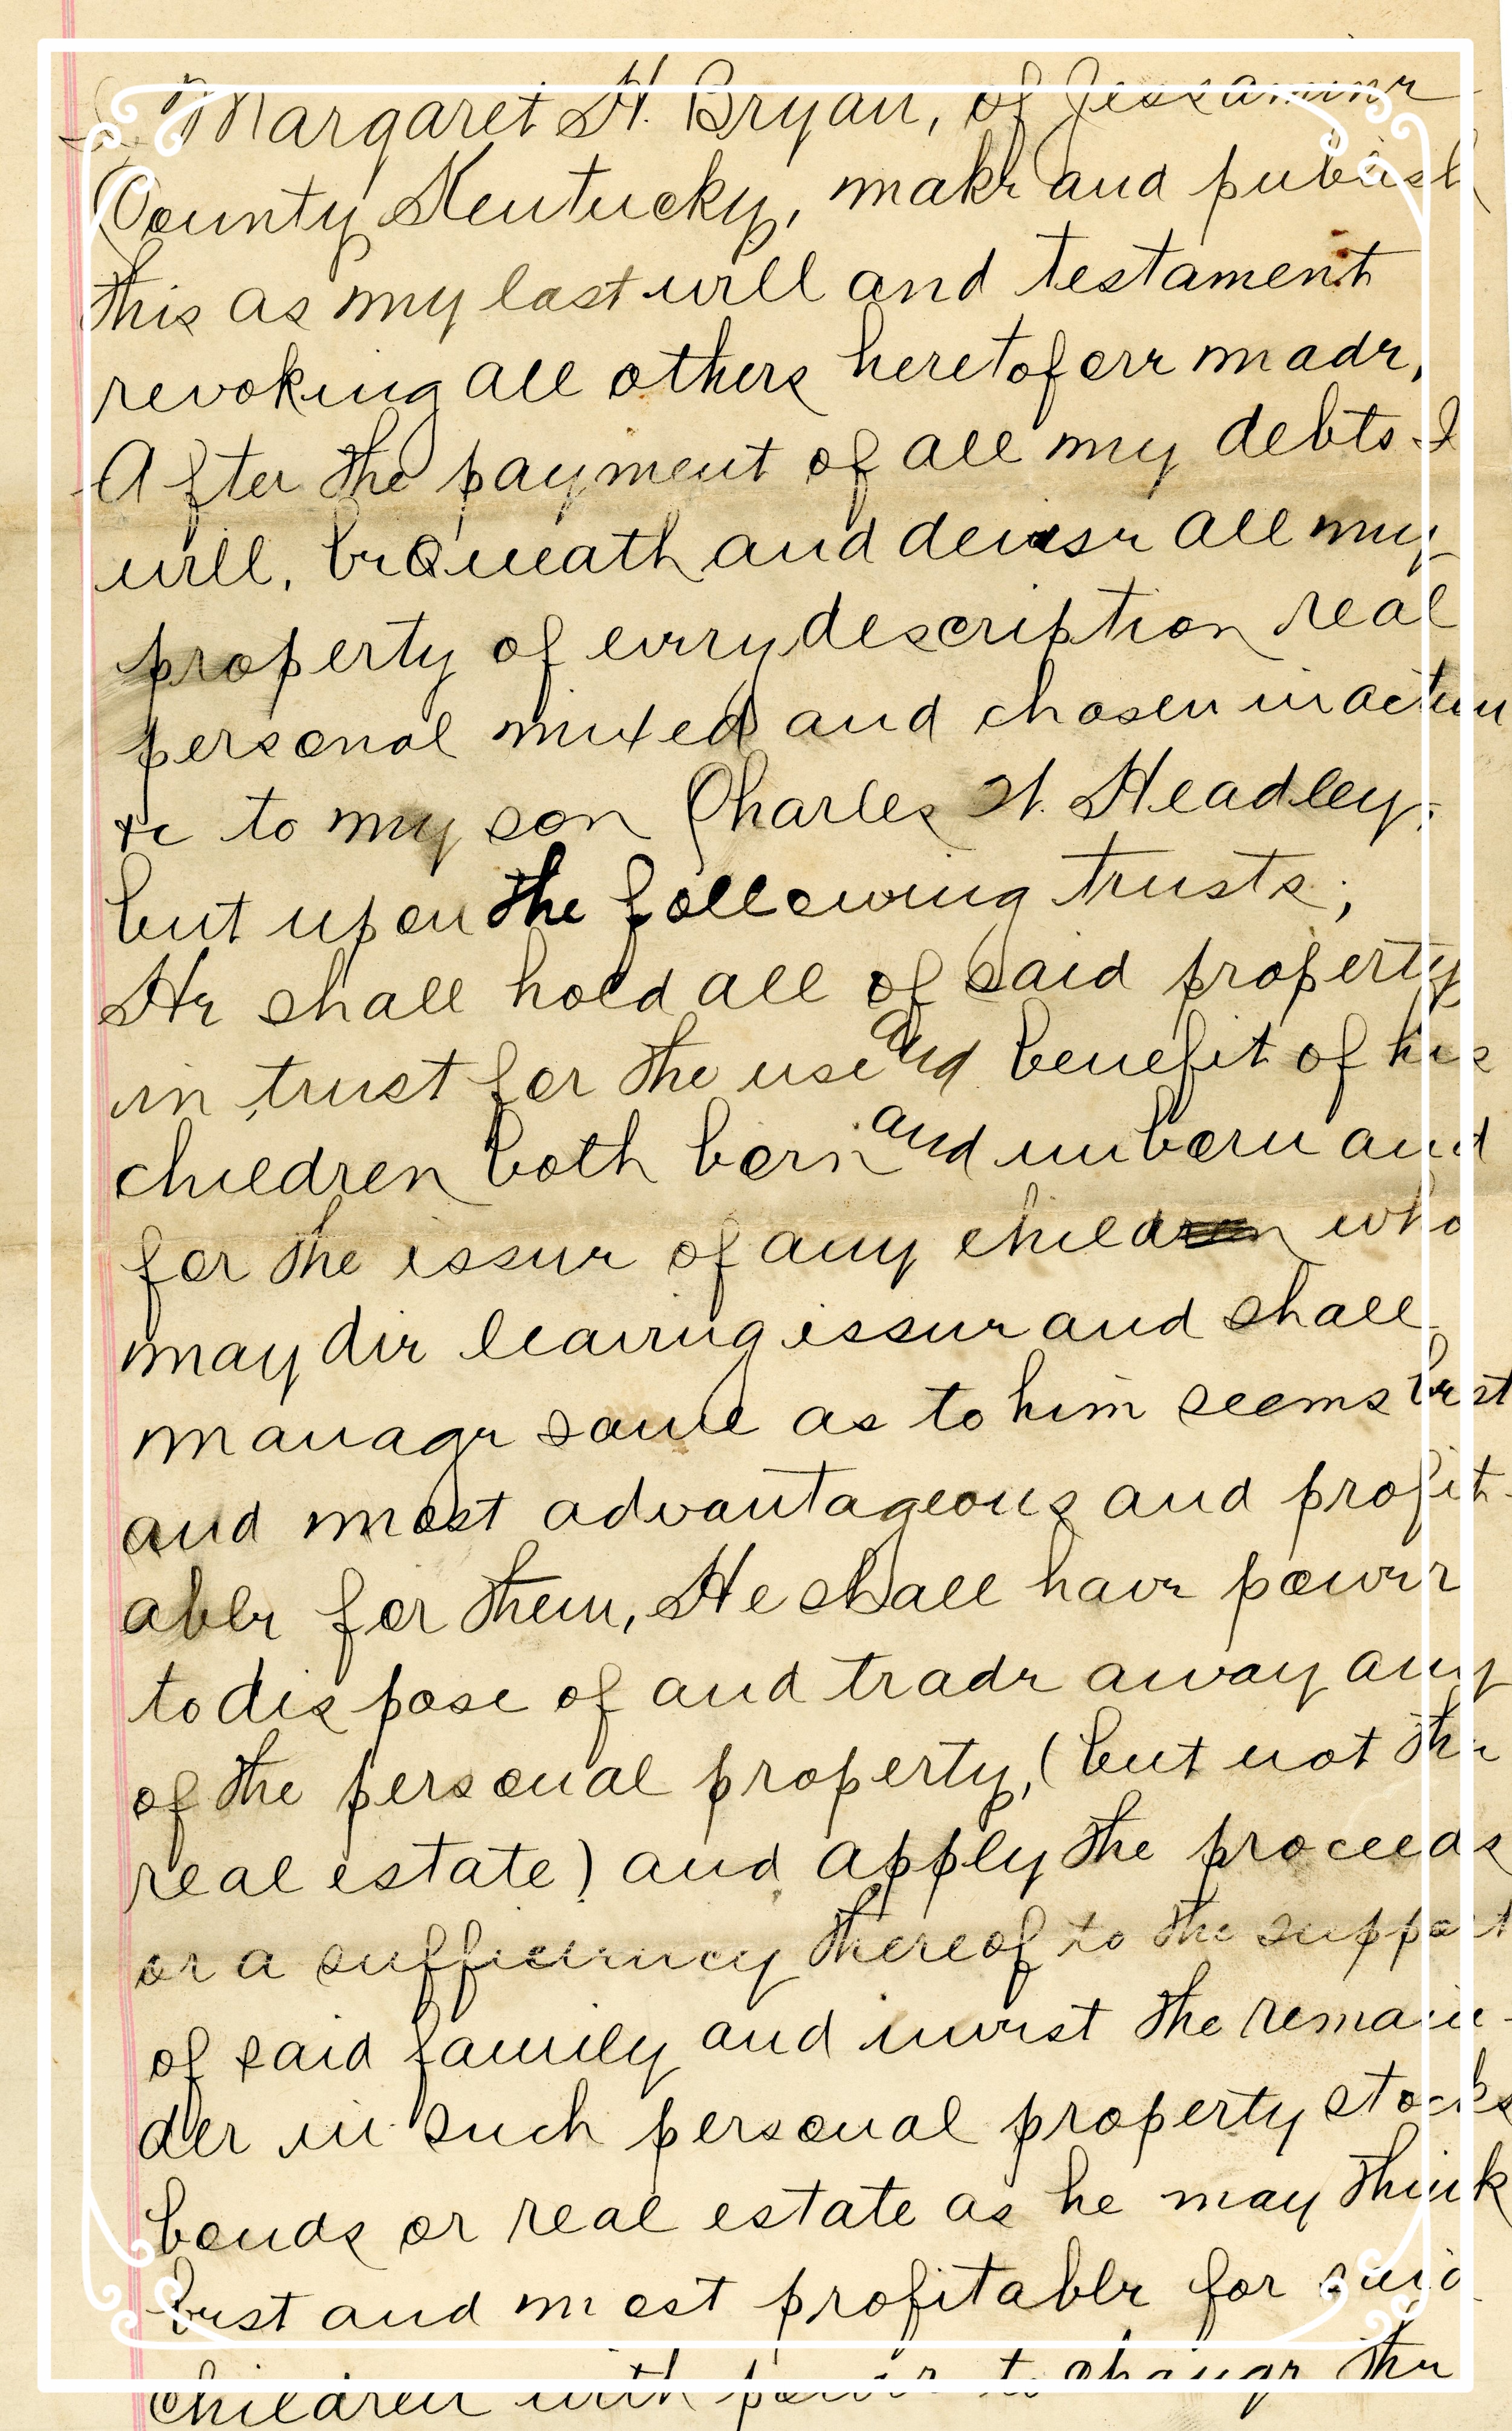 I, Margaret H. Bryan, of Jessamine
County Kentucky, make and publish
this as my last will and testament
revoking all others heretofore made,
After the payment of all my debts I
will, beQueath and devise all my
property of every description real
personal mixed and chosen in action
&c to my son Charles H. Headley,
but upon the following trusts;
He shall hold all of said property
in trust for the use and benefit of his
children both born and unborn and
for the issue of any child who
may die leaving issue and shall
manage same as to him seems best
and most advantageous and profit-
able for them, He shall have power
to dispose of and trade away any
of the personal property, (but not the
real estate) and apply the proceeds
or a sufficiency thereof to the support
of said family and invest the remain-
der in such personal property stocks
bonds or real estate as he may think
best and most profitable for said
children with power to change the